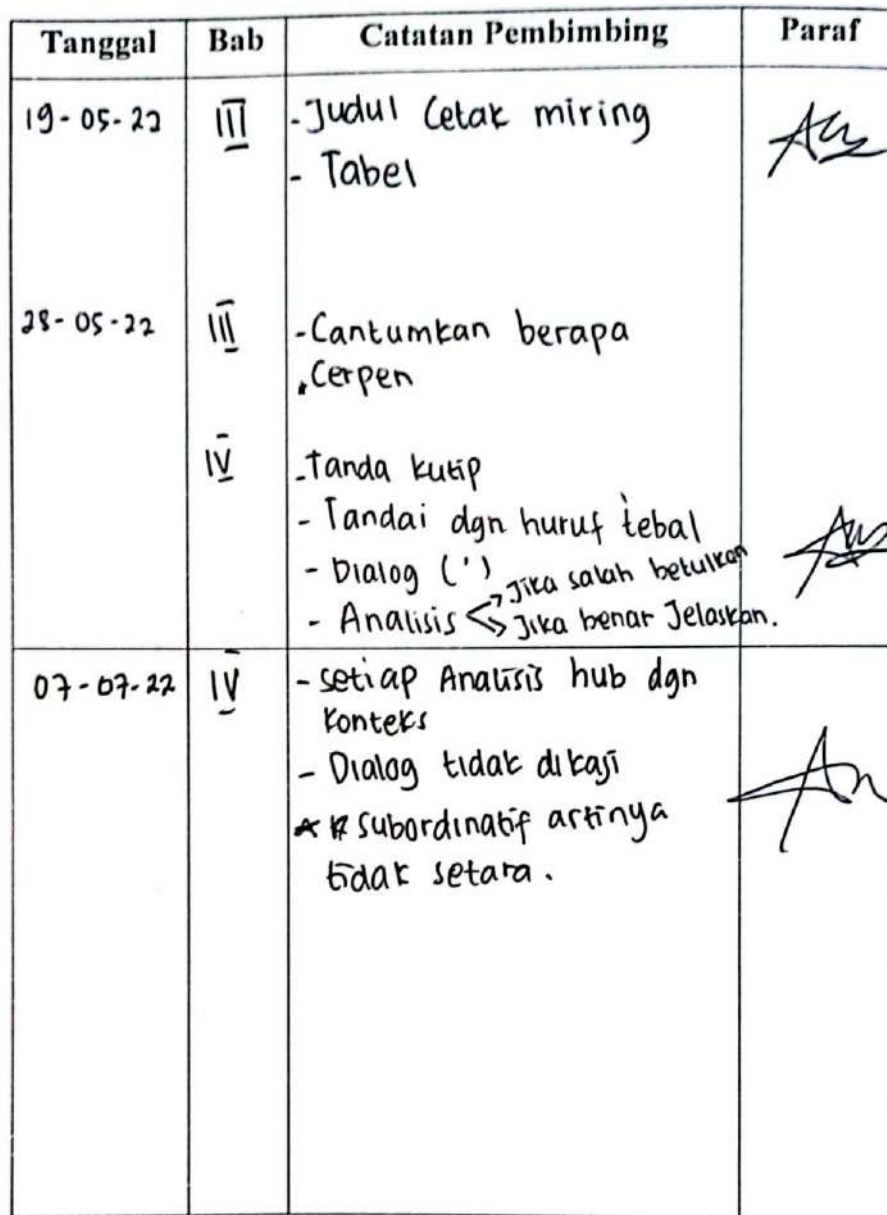 Tanggal Bab Catatan Pembimbing Paraf
19-05-22 III - Judul Cetak miring
- Tabel
28-05-22 III - Cantumkan berapa
Cerpen
IV - Tanda kutip
- Tandai dgn huruf tebal
- Dialog (')
Jika salah betulkan
- Analisis Jika benar Jelaskan.
07-07-22 IV - setiap Analisis hub dgn
konteks
- Dialog tidak dikaji
* subordinatif artinya
tidak setara.